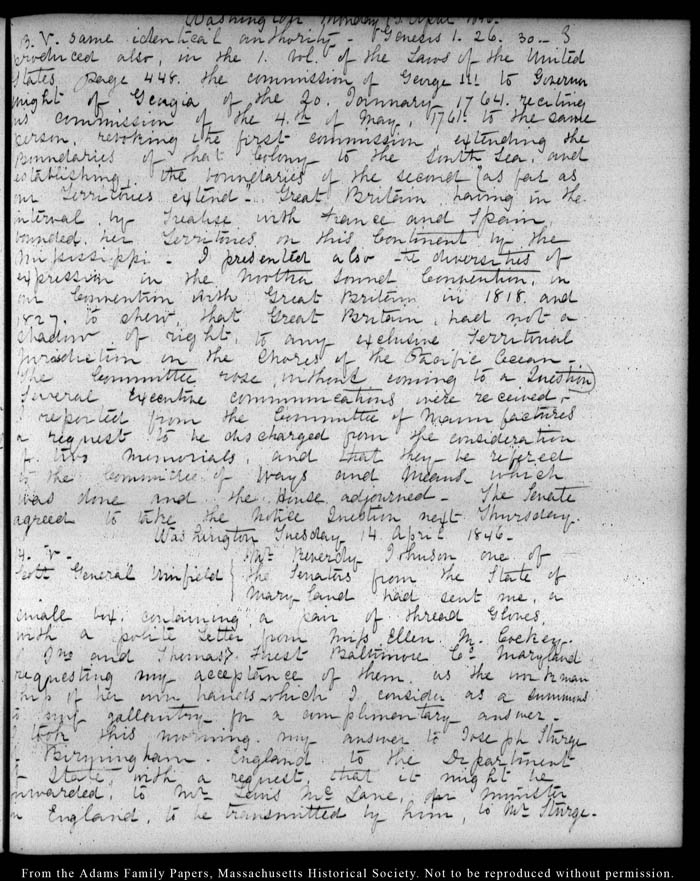 Washington Monday 13 April 1846.
13. V. same identical authority - Genesis 1. 26. 30. - I
produced also, in the 1. vol. of the Laws of the United
States page 448. the commission of George III. to Governor
Wright of Georgia of the 20. January 1764. reciting
his commission of the 4.th of May, 1761. to the same
person, revoking the first commission, extending the
boundaries of that Colony to the South Sea, and
establishing, the boundaries of the second "as far as
our Territories extend". Great Britain having in the
interval by treatise with France and Spain,
bounded her Territories on this Continent by the
Mississippi. - I presented also the diversities of
expression in the Nootka Sound Convention, in
our Convention with Great Britain in 1818. and
1827. to shew that Great Britain, had not a
shadow of right, to any exclusive Territorial
jurisdiction on the Shores of the Pacific Ocean -
The Committee rose, without coming to a Question
Several Executive communications were received -
I reported from the Committee of Manufactures
a request to be discharged from the consideration
of two memorials, and that they be referred
to the Committee of Ways and Means, which
was done and the House adjourned - The Senate
agreed to take the Notice Question next Thursday.
Washington Tuesday 14. April 1846 -
14. V. - Mr Reverdy Johnson one of
Scott General Winfield { the Senators from the State of
Maryland had sent me, a
small box, containing a pair of thread Gloves,
with a polite Letter from Miss Ellen M. Cockey -
of Jno and Thomas Forest Baltimore Co. Maryland
requesting my acceptance of them, as the workman
ship of her own hands which I consider as a summons
to my gallantry for a complimentary answer -
I took this morning my answer to Joseph Sturge
of Birmingham. England to the Department
of State, with a request, that it might be
forwarded, to Mr Lewis McLane, our minister
in England, to be transmitted by him, to Mr Sturge -
From the Adams Family Papers, Massachusetts Historical Society. Not to be reproduced without permission.